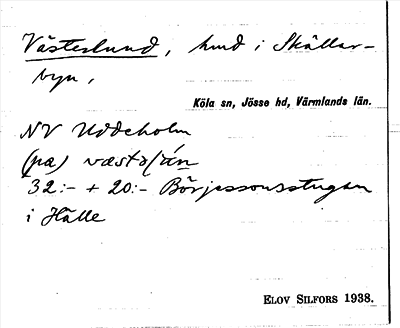 Västerlund, hmd i Skällar-
byn,
Köla sn, Jösse hd, Värmlands län.
NV Uddeholm
(pa) væstəlún
32:- + 20:- Börjessonsstugan
i Hälle
ELOV SILFORS 1938.